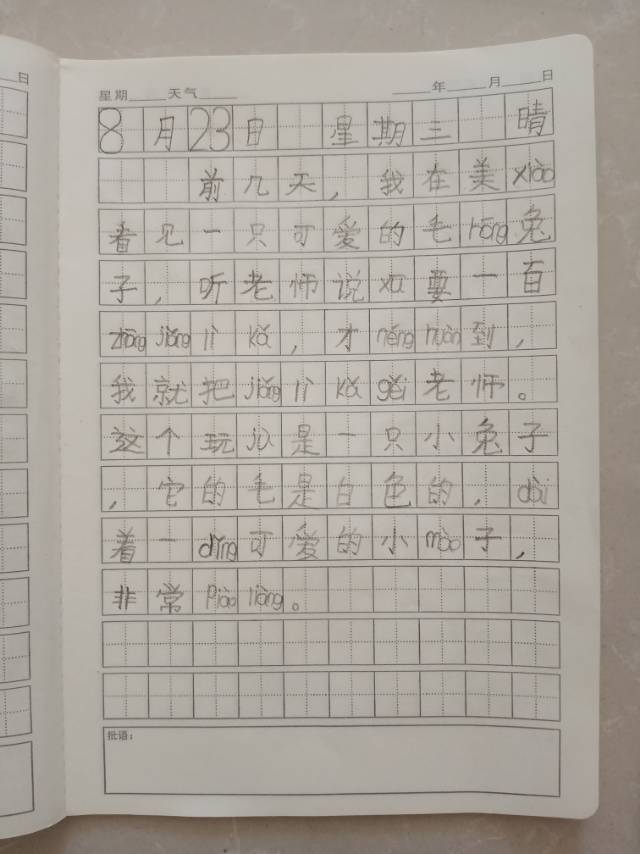 日
星期____天气____ ____年____月____日
8月23日 星期三 晴
前几天，我在美xiào
看见一只可爱的毛róng兔
子，听老师说xū要一百
zhāng jiǎng lì kǎ，才néng huàn到，
我就把jiǎng lì kǎ gěi老师。
这个玩jù是一只小兔子
，它的毛是白色的，dài
着一dǐng可爱的小mào子，
非常piào liàng。
批语：